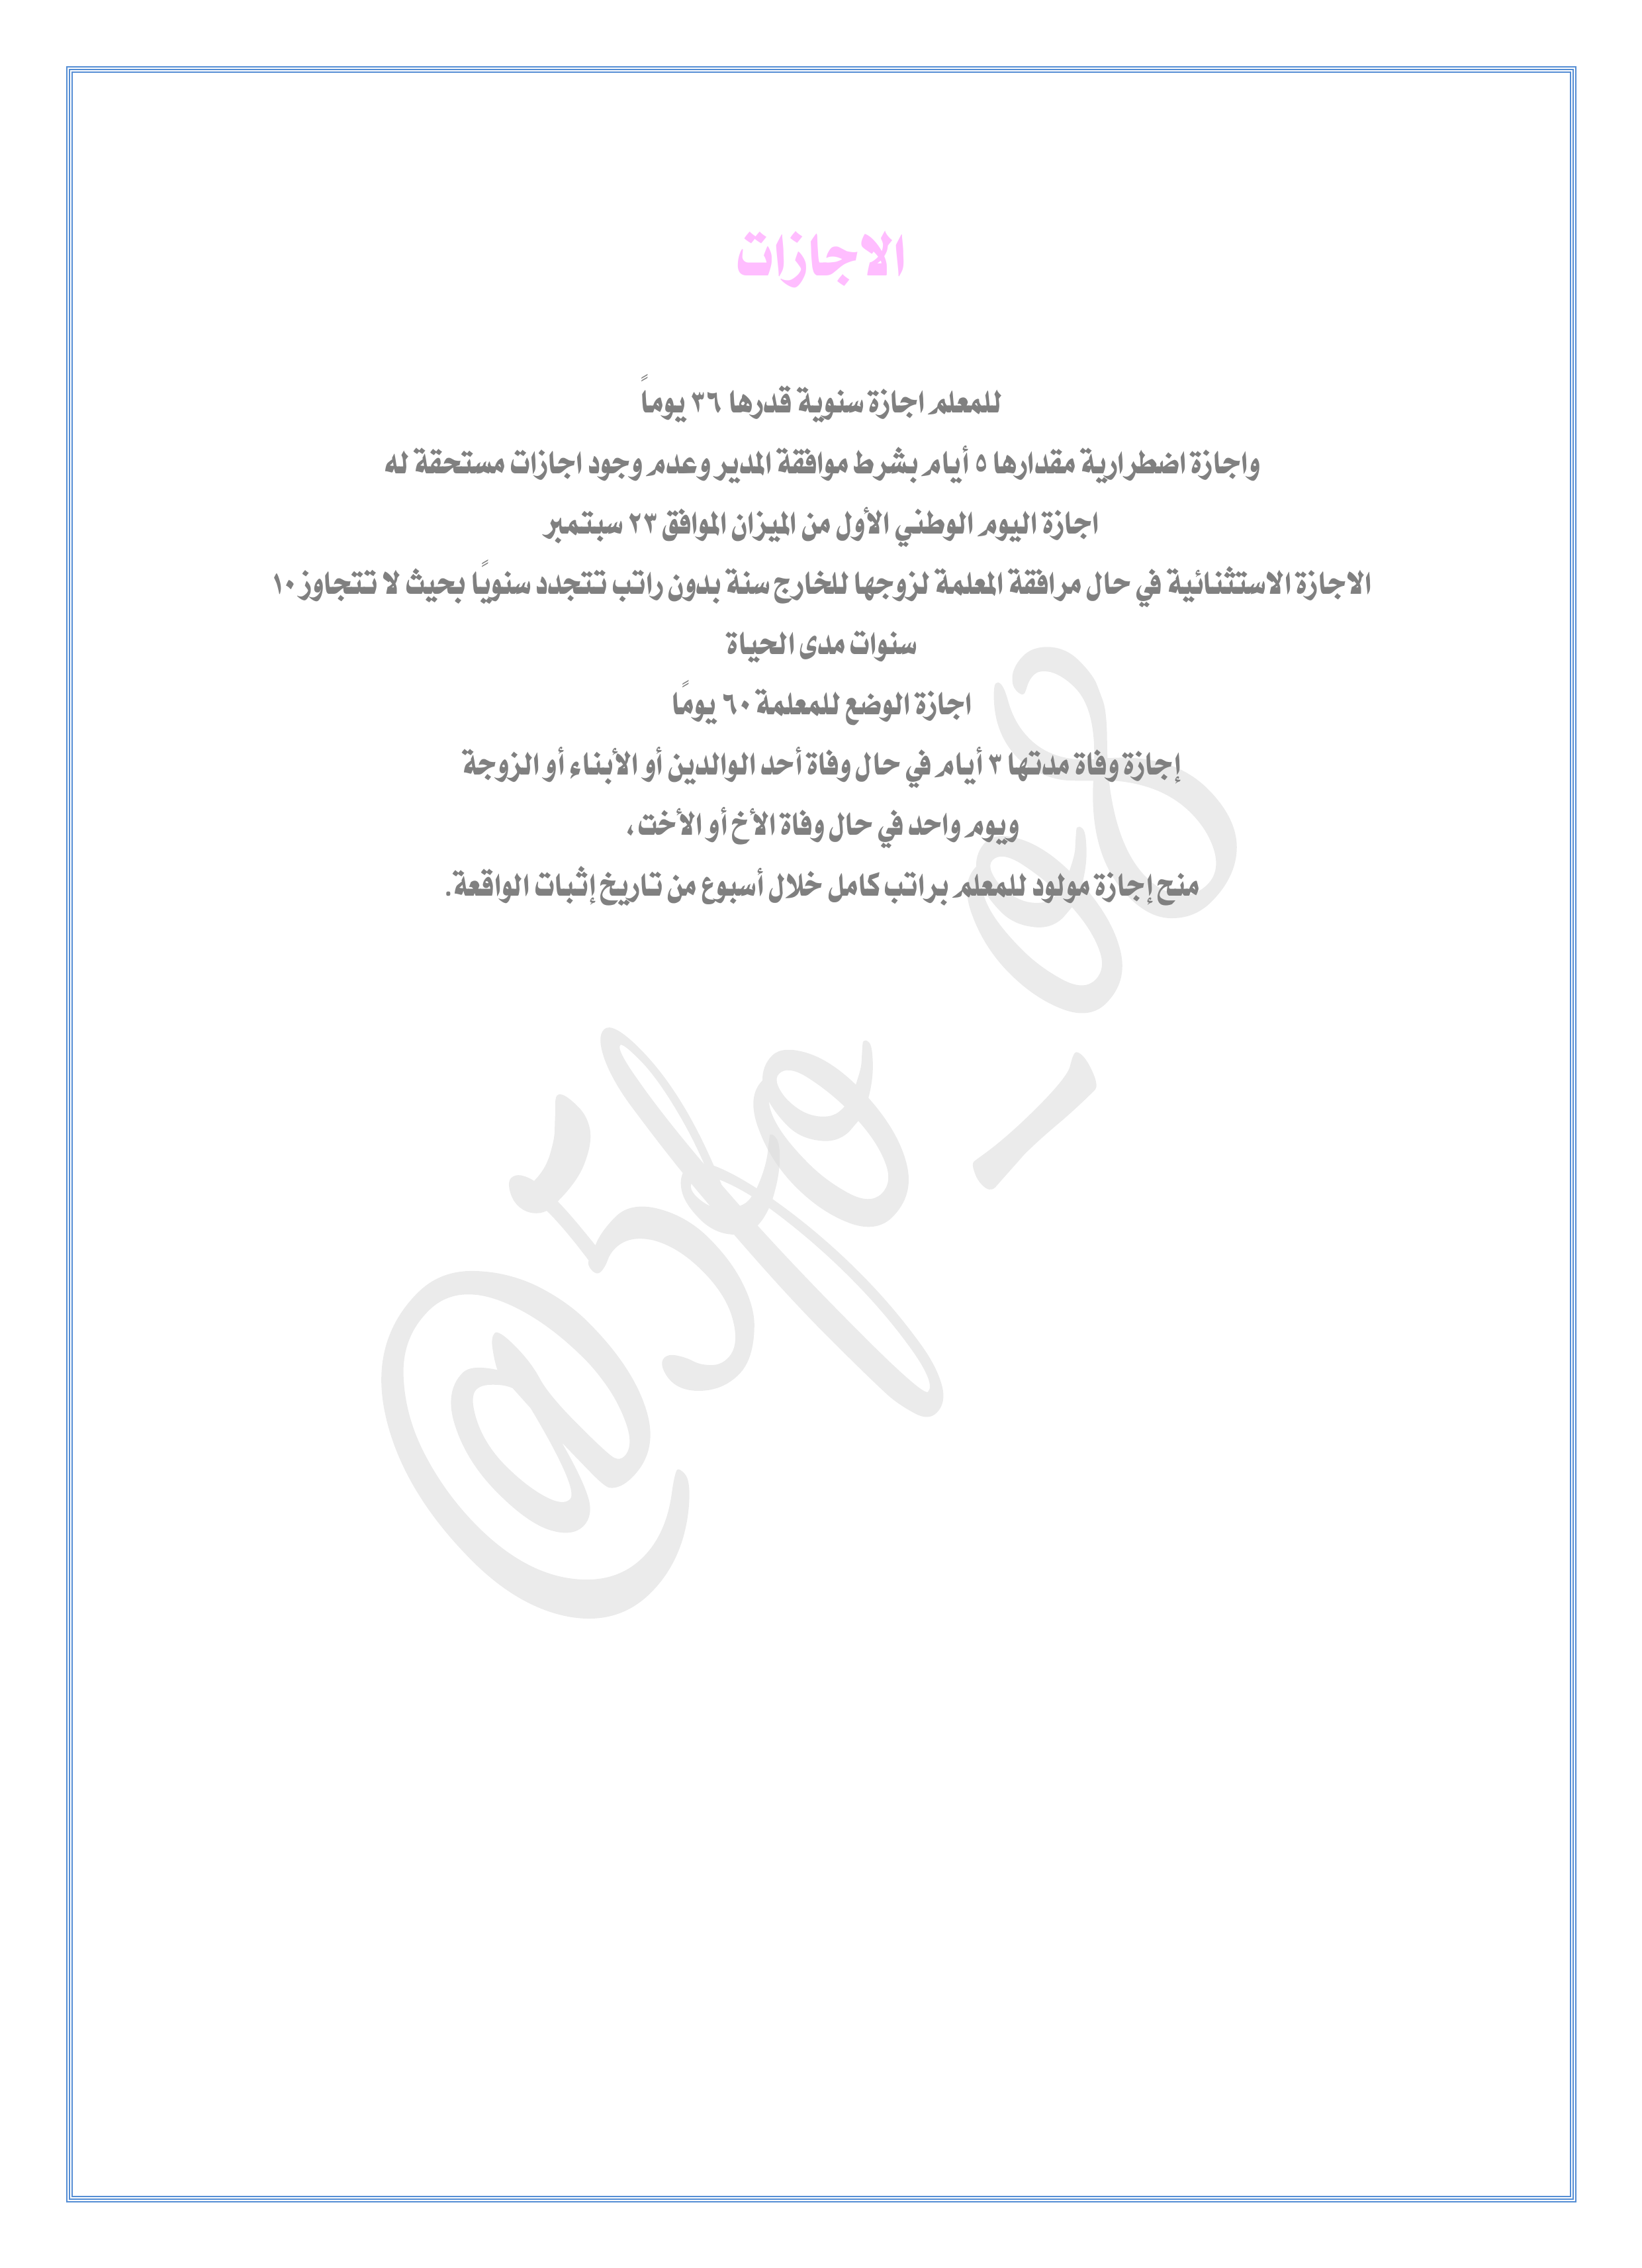 الاجازات
للمعلم اجازة سنوية قدرها ٣٦ يوماً
واجازة اضطرارية مقدارها ٥ أيام بشرط موافقة المدير وعدم وجود اجازات مستحقة له
اجازة اليوم الوطني الأول من الميزان الموافق ٢٣ سبتمبر
الاجازة الاستثنائية في حال مرافقة المعلمة لزوجها للخارج سنة بدون راتب تتجدد سنويًا بحيث لا تتجاوز ١٠
سنوات مدى الحياة
اجازة الوضع للمعلمة ٦٠ يومًا
إجازة وفاة مدتها ٣ أيام في حال وفاة أحد الوالدين أو الأبناء أو الزوجة
ويوم واحد في حال وفاة الأخ أو الأخت ،
منح إجازة مولود للمعلم براتب كامل خلال أسبوع من تاريخ إثبات الواقعة.
@5fo_o8